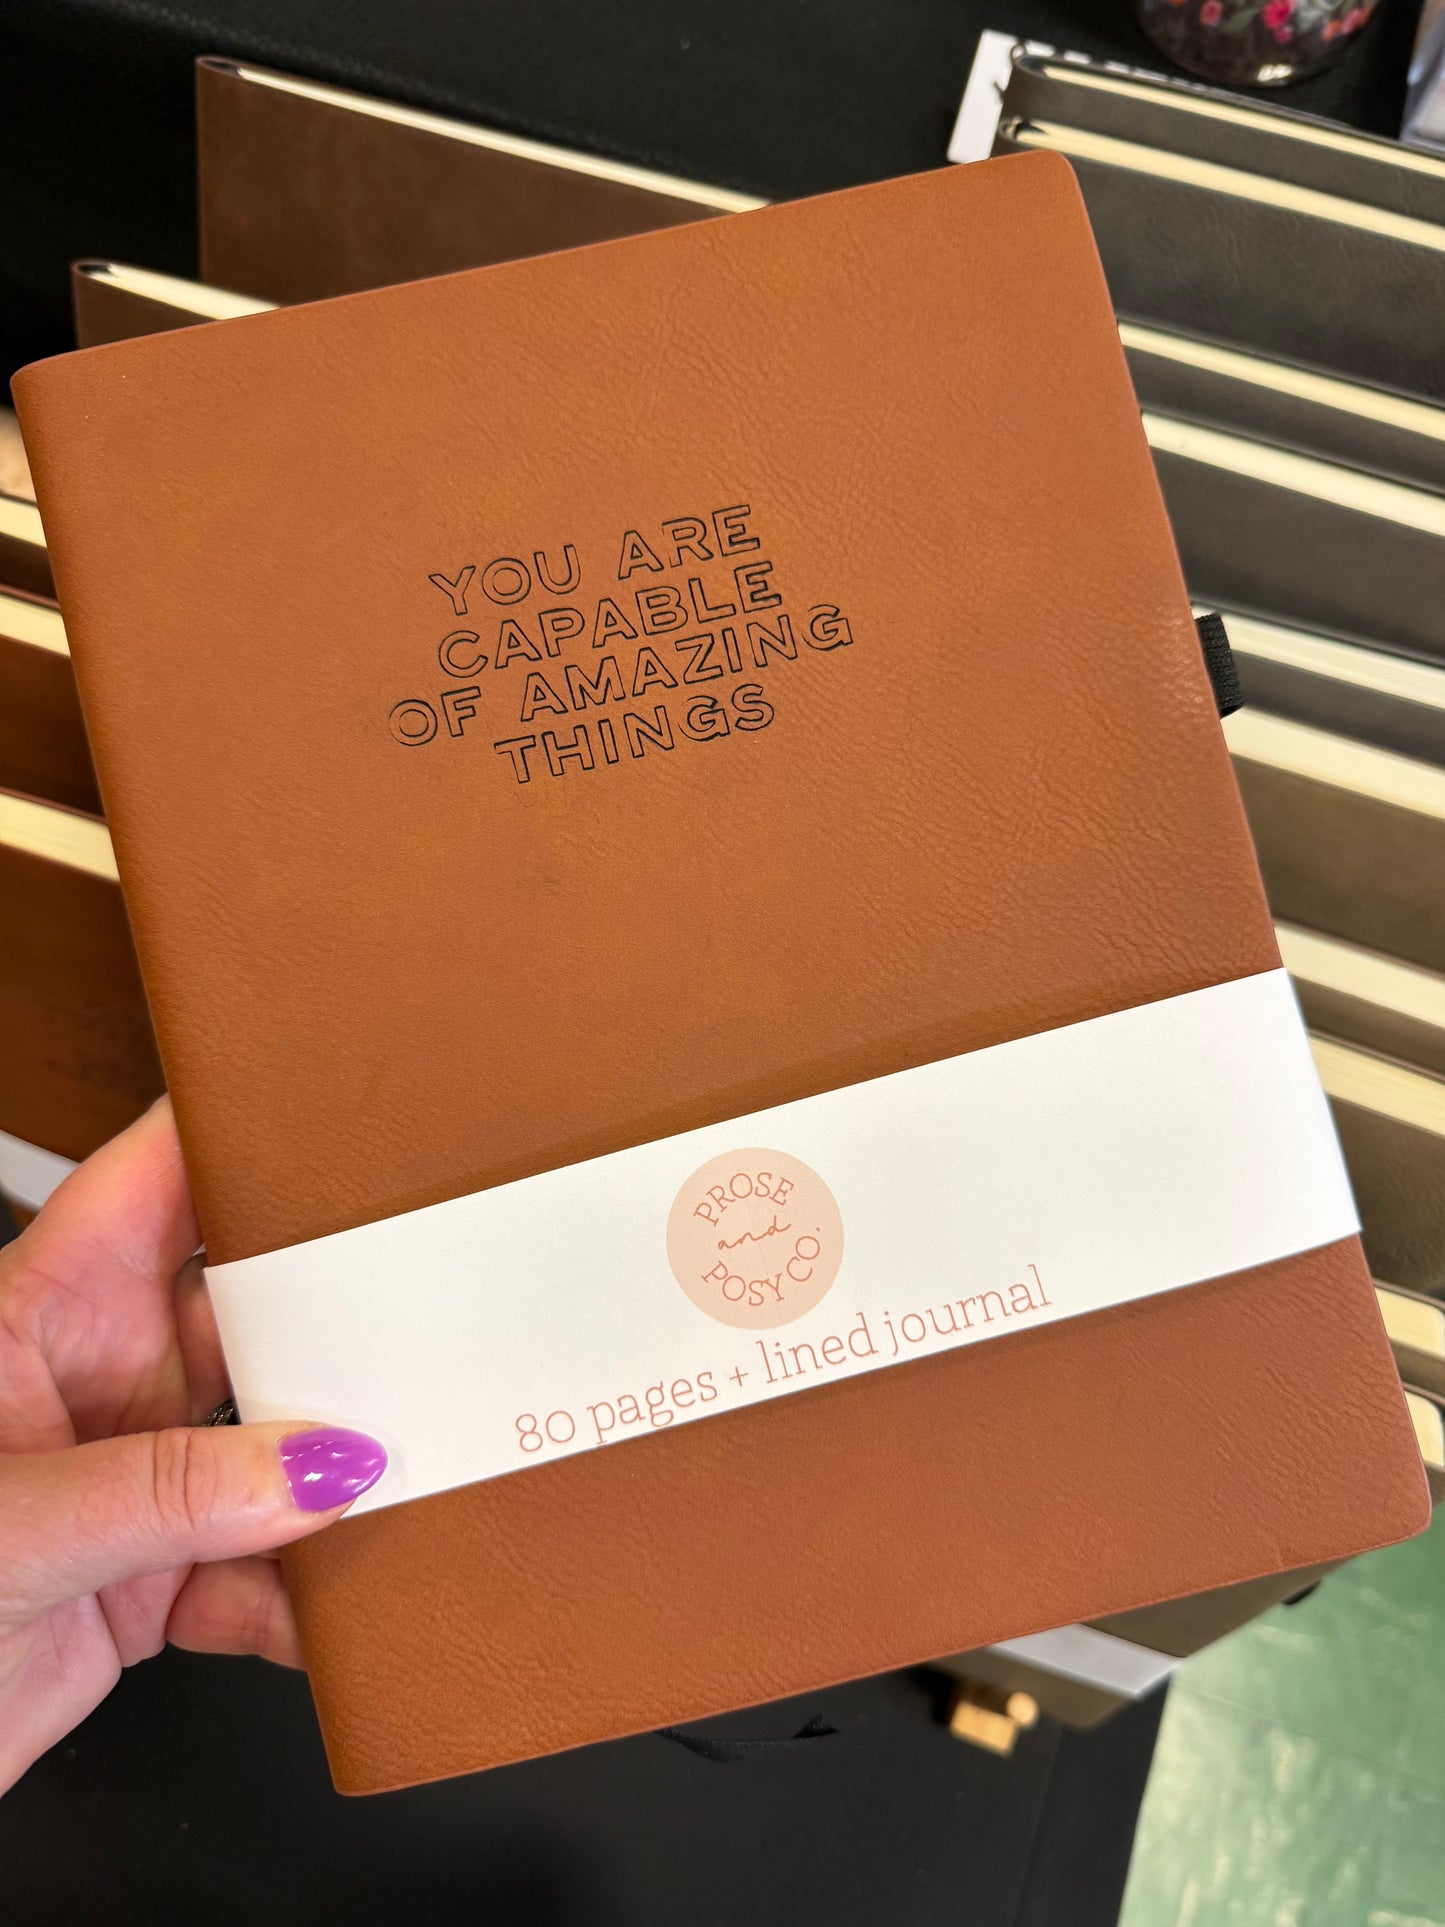 YOU ARE
CAPABLE
OF AMAZING
THINGS
PROSE
and
POSY CO.
80 pages + lined journal